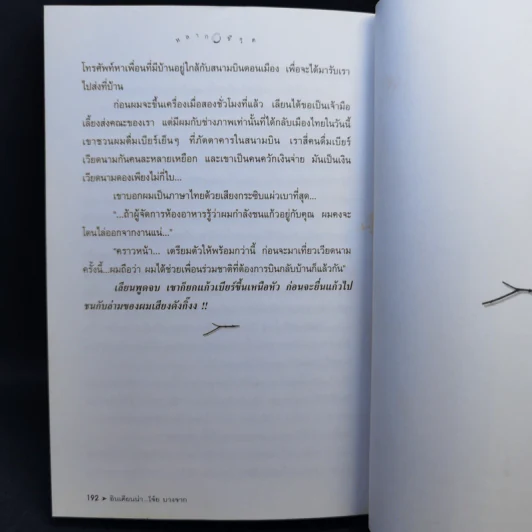 หลายชีวิต
โทรศัพท์หาเพื่อนที่มีบ้านอยู่ใกล้กับสนามบินดอนเมือง เพื่อจะได้มารับเรา
ไปส่งที่บ้าน
ก่อนผมจะขึ้นเครื่องเมื่อสองชั่วโมงที่แล้ว เลียนได้ขอเป็นเจ้ามือ
เลี้ยงส่งคณะของเรา แต่มีผมกับช่างภาพเท่านั้นที่ได้กลับเมืองไทยในวันนี้
เขาชวนผมดื่มเบียร์เย็นๆ ที่ภัตตาคารในสนามบิน เราสี่คนดื่มเบียร์
เวียดนามกันคนละหลายเหยือก และเขาเป็นคนควักเงินจ่าย มันเป็นเงิน
เวียดนามดองเพียงไม่กี่ใบ...
เขาบอกผมเป็นภาษาไทยด้วยเสียงกระซิบแผ่วเบาที่สุด...
"...ถ้าผู้จัดการห้องอาหารรู้ว่าผมกำลังชนแก้วอยู่กับคุณ ผมคงจะ
โดนไล่ออกจากงานแน่..."
"คราวหน้า... เตรียมตัวให้พร้อมกว่านี้ ก่อนจะมาเที่ยวเวียดนาม
ครั้งนี้...ผมถือว่า ผมได้ช่วยเพื่อนร่วมชาติที่ต้องการบินกลับบ้านก็แล้วกัน"
เลียนพูดจบ เขาก็ยกแก้วเบียร์ขึ้นเหนือหัว ก่อนจะยื่นแก้วไป
ชนกับล่ามของผมเสียงดังกิ๊งง !!
192 ➤ อินเดียนน่า...โจ้ย บางจาก